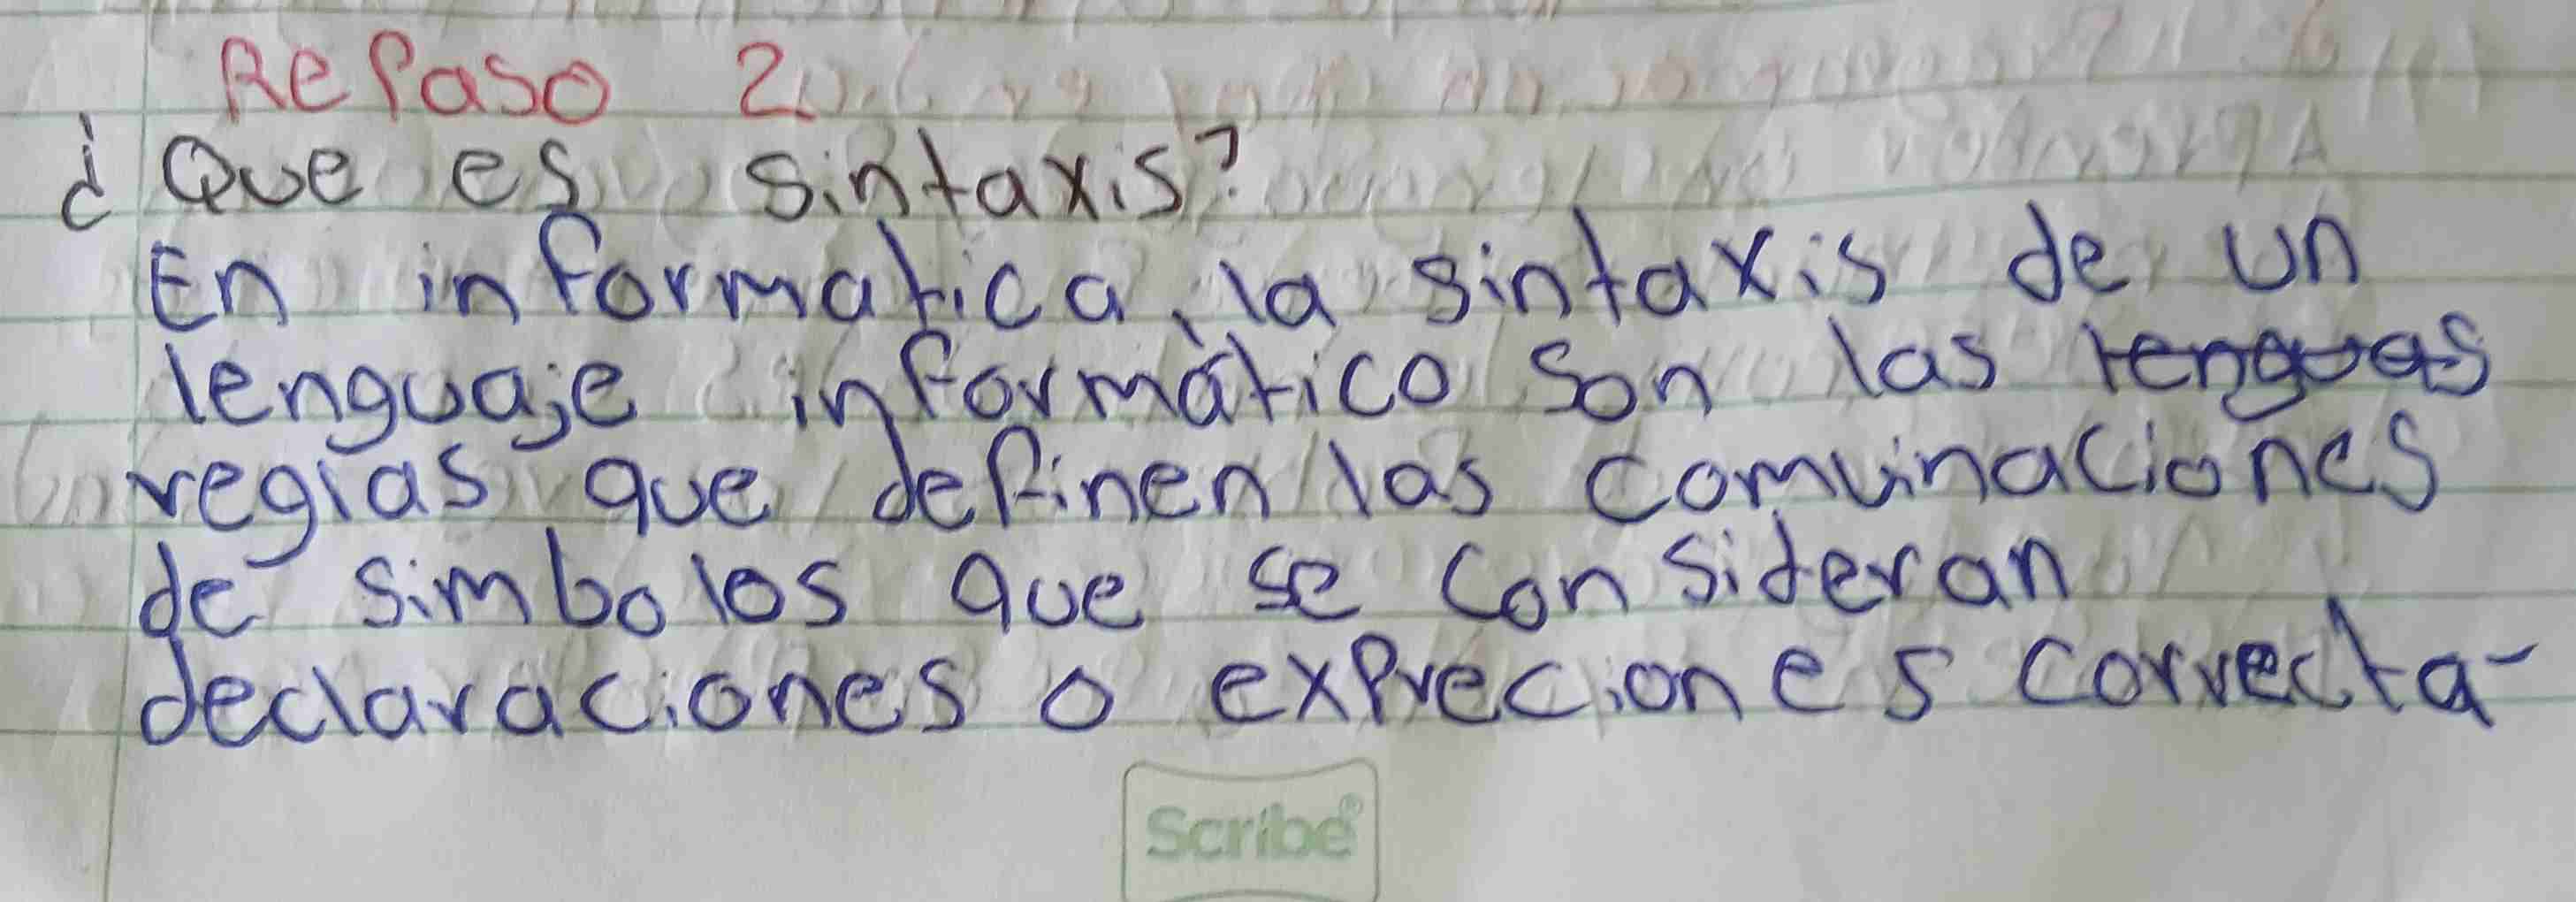 Repaso 2
¿Que es sintaxis?
En informatica, la sintaxis de un
lenguaje informático son las lenguas
reglas que definen las comvinaciones
de simbolos que se consideran
declaraciones o expreciones correcta-
Scribe®